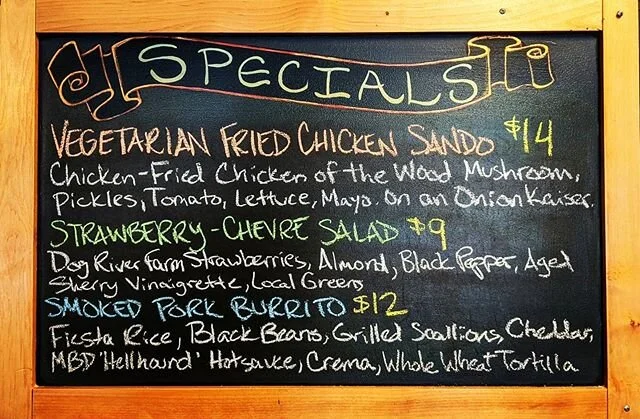 SPECIALS
VEGETARIAN FRIED CHICKEN SANDO $14
Chicken-Fried Chicken of the Wood Mushroom,
Pickles, Tomato, Lettuce, Mayo. On an Onion Kaiser.
STRAWBERRY-CHEVRE SALAD $9
Dog River Farm Strawberries, Almond, Black Pepper, Aged
Sherry Vinaigrette, Local Greens
SMOKED PORK BURRITO $12
Fiesta Rice, Black Beans, Grilled Scallions, Cheddar,
MBD 'Hellhound' Hotsauce, Crema, Whole Wheat Tortilla